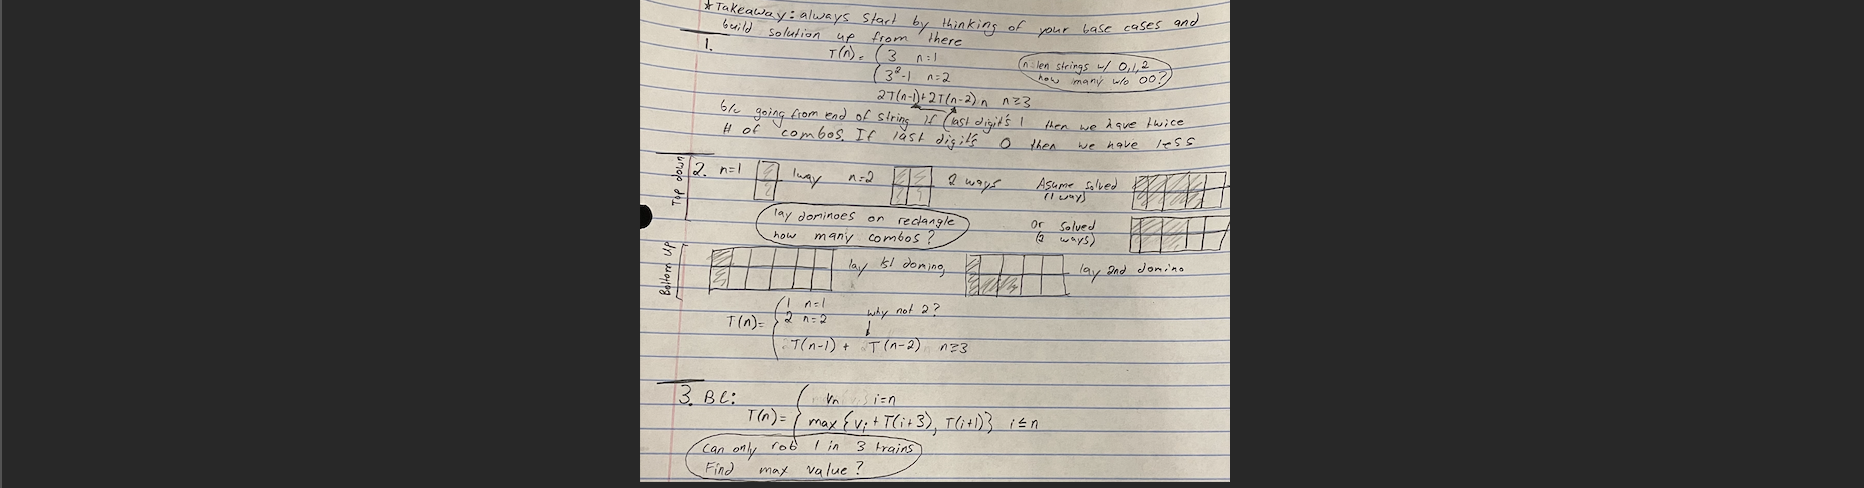 *Takeaway: always start by thinking of your base cases and
build solution up from there
1.
T(n) = { 3 n=1
3²-1 n=2
2T(n-1)+2T(n-2) n≥3
n len strings w/ 0,1,2
how many w/o 00?
b/c going from end of string if last digit's 1 then we have twice
# of combos. If last digit's 0 then we have less
Top down
2. n=1 1way n=2 2 ways Asume solved
(1 way)
lay dominoes on rectangle
how many combos?
Or solved
(2 ways)
Bottom up
lay 1st domino, lay 2nd domino
T(n)= { 1 n=1
2 n=2 why not 2?
T(n-1) + T(n-2) n≥3
3. BC: vn i=n
T(n)= { max {vi + T(i+3), T(i+1)} i≤n
can only rob 1 in 3 trains
Find max value?